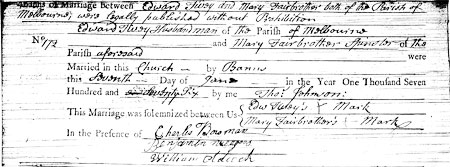 Banns of Marriage Between Edward Twey and Mary Fairbrother both of the Parish of
Melbourne, were legally published without Prohibition
Edward Twey Husbandman of the Parish of Melbourne
No. 172 and Mary Fairbrother Spinster of the
Parish aforesaid were
Married in this Church by Banns
this Seventh Day of June in the Year One Thousand Seven
Hundred and Seventy Six by me Thos. Johnson:
This Marriage was solemnized between Us Edw Mark
Mary Fairbrother's Mark
In the Presence of Charles Bowman
Benjamin
William